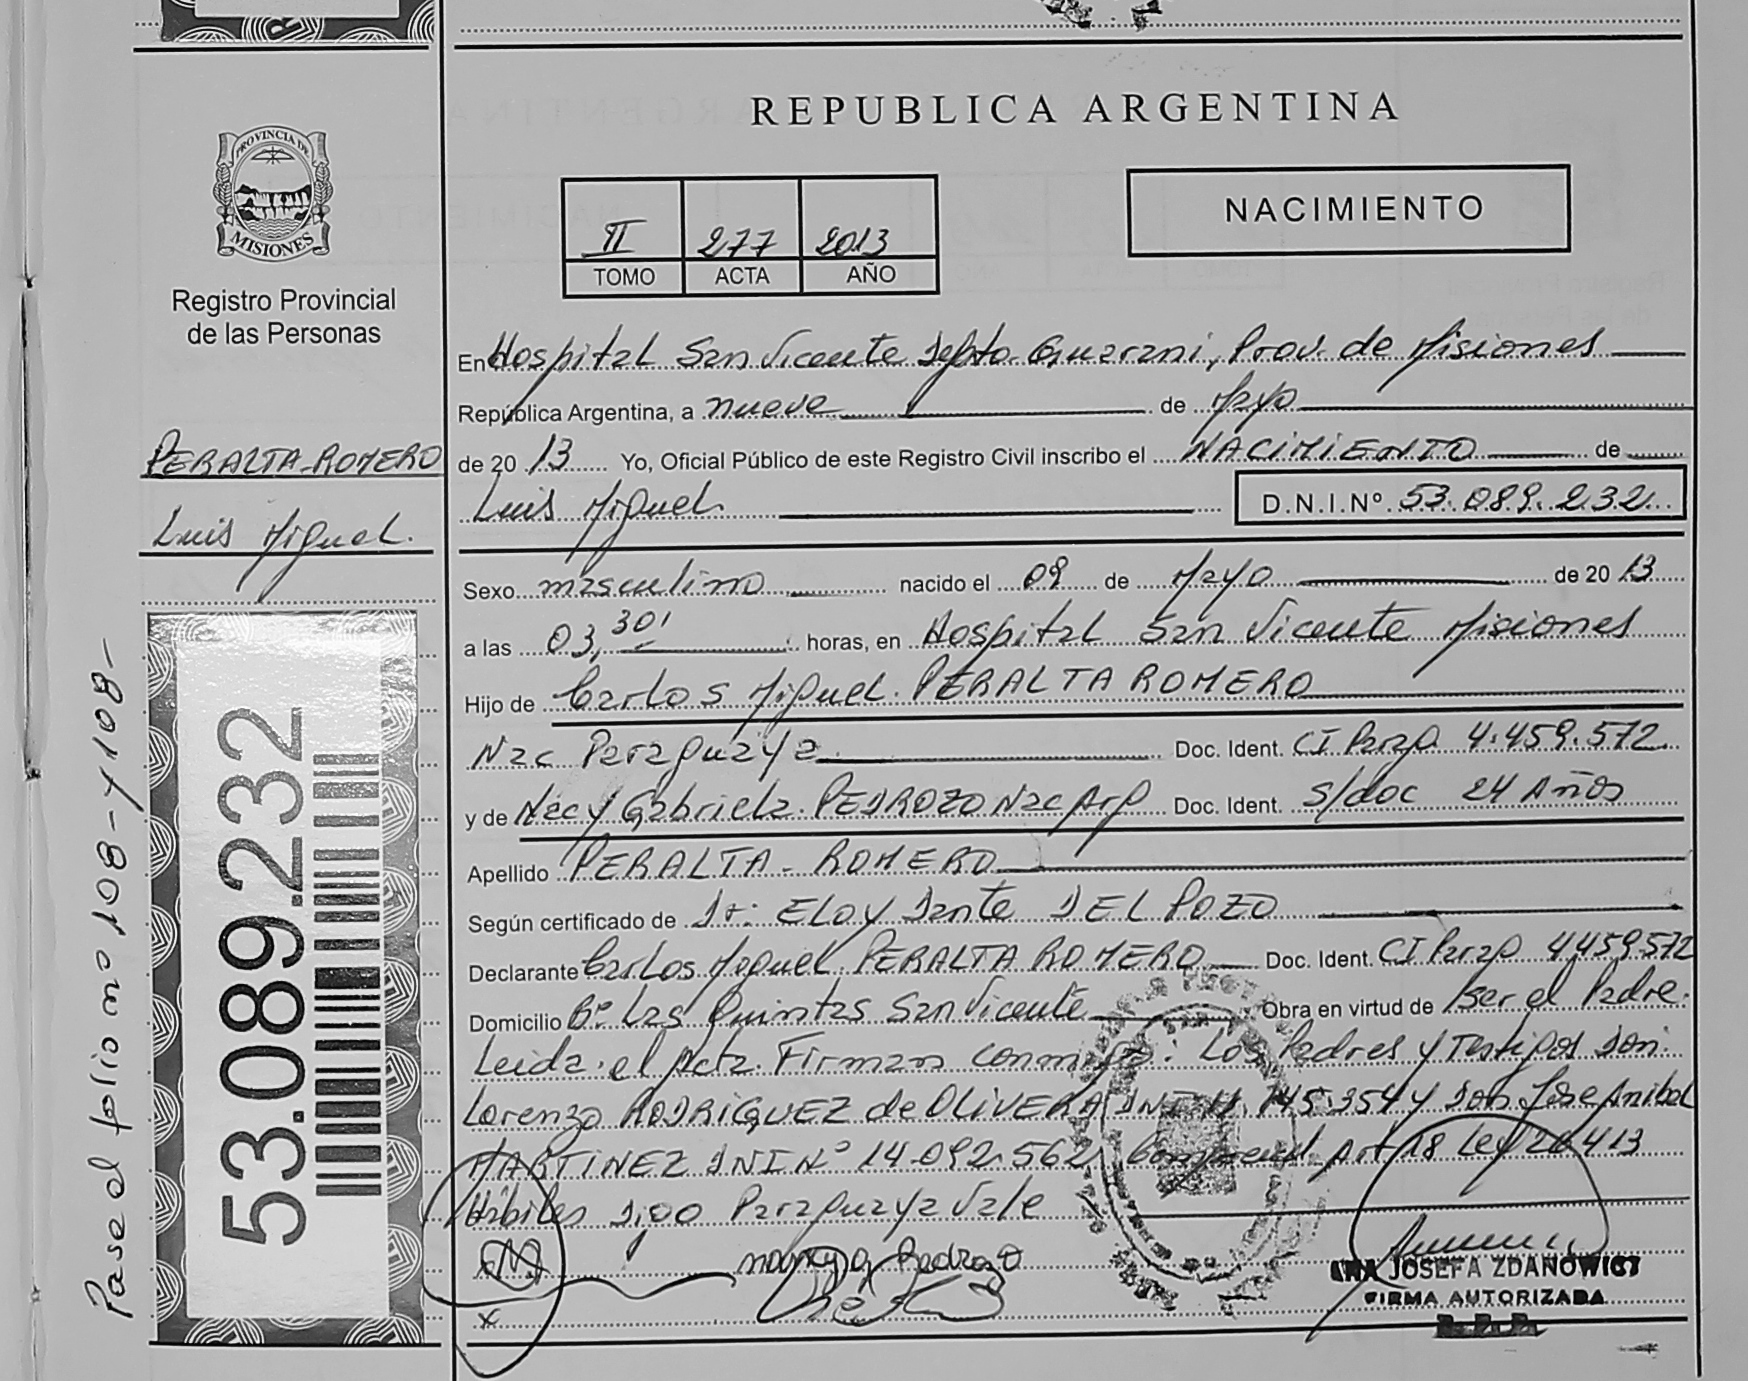 REPUBLICA ARGENTINA
PROVINCIA DE
MISIONES
Registro Provincial
de las Personas
II 277 2013
TOMO ACTA AÑO
NACIMIENTO
PERALTA-ROMERO
Luis Miguel.
53.089.232
Pase al folio nro 108- y 108-
En Hospital San Vicente Dpto. Guarani, Prov. de Misiones
República Argentina, a nueve de Mayo
de 20 13 Yo, Oficial Público de este Registro Civil inscribo el NACIMIENTO de
Luis Miguel. D.N.I.Nº 53.089.232
Sexo masculino nacido el 09 de Mayo de 20 13
a las 03,30' horas, en Hospital San Vicente Misiones
Hijo de Carlos Miguel. PERALTA ROMERO
Nac Paraguaya Doc. Ident. CI Parag. 4.459.572
y de Gabriela. PEDROZO Nac Arg Doc. Ident. s/doc 24 Años
Apellido PERALTA - ROMERO
Según certificado de Dr: ELOY Dante DEL POZO
Declarante Carlos Miguel PERALTA ROMERO Doc. Ident. CI Parag 4459.572
Domicilio Bº Las Quintas San Vicente Obra en virtud de ser el Padre.
Leida el Acta. Firman conmigo: Los Padres y Testigos Son:
Lorenzo RODRIGUEZ de OLIVERA DNI 145.354 y Don Jose Anibal
MARTINEZ DNI Nº 14.092.562 Art 18 Ley 26413
Hábiles Digo Paraguaya Vale
Pedrozo
x
JOSEFA ZDANOWICT
FIRMA AUTORIZADA